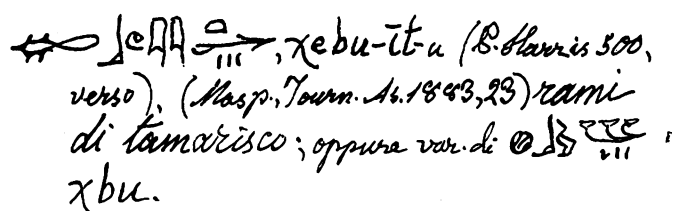 , χebu-īt-u (P. Harris 500,
verso), (Masp., Journ. As. 1883, 23) rami
di tamarisco; oppure var. di
χbu.